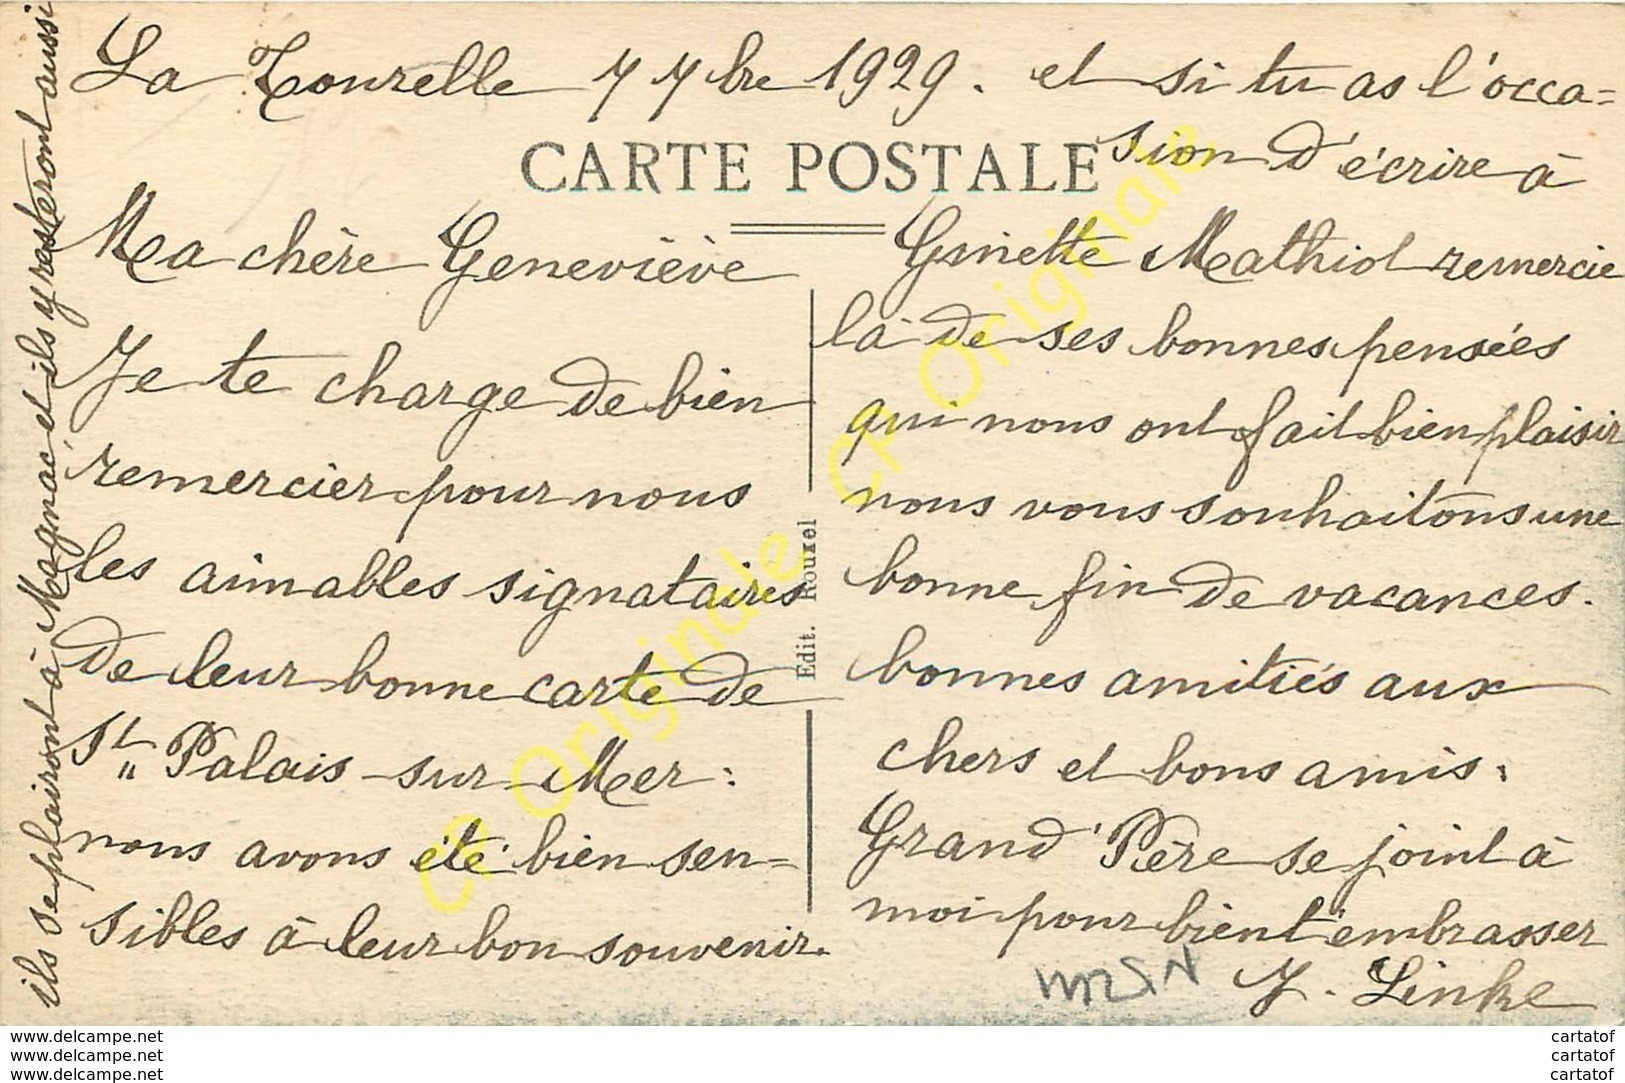 La Tourelle 7 7bre 1929.
CARTE POSTALE
Ma chère Geneviève
Je te charge de bien
remercier pour nous
les aimables signataires
de leur bonne carte de
St Palais-sur-Mer:
nous avons été bien sen=
sibles à leur bon souvenir.
et si tu as l'occa=
sion d'écrire à
Ginette Mathiot remercie
la de ses bonnes pensées
qui nous ont fait bien plaisir
nous vous souhaitons une
bonne fin de vacances.
bonnes amitiés aux
chers et bons amis.
Grand'Père se joint à
moi pour bien t'embrasser
J. Linke
ils se plairont à Magnac, et ils y resteront aussi
Edit. Rouxel
CP Originale
CP Originale
www.delcampe.net
www.delcampe.net
www.delcampe.net
cartatof
cartatof
cartatof